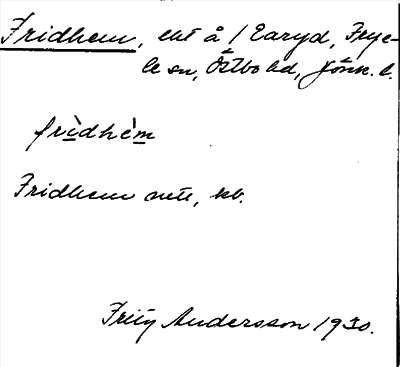 Fridhem, lht å 1 Earyd, Frye-
le sn, Östbo hd, Jönk. l.
frìdhèm
Fridhem
Andersson 1930.